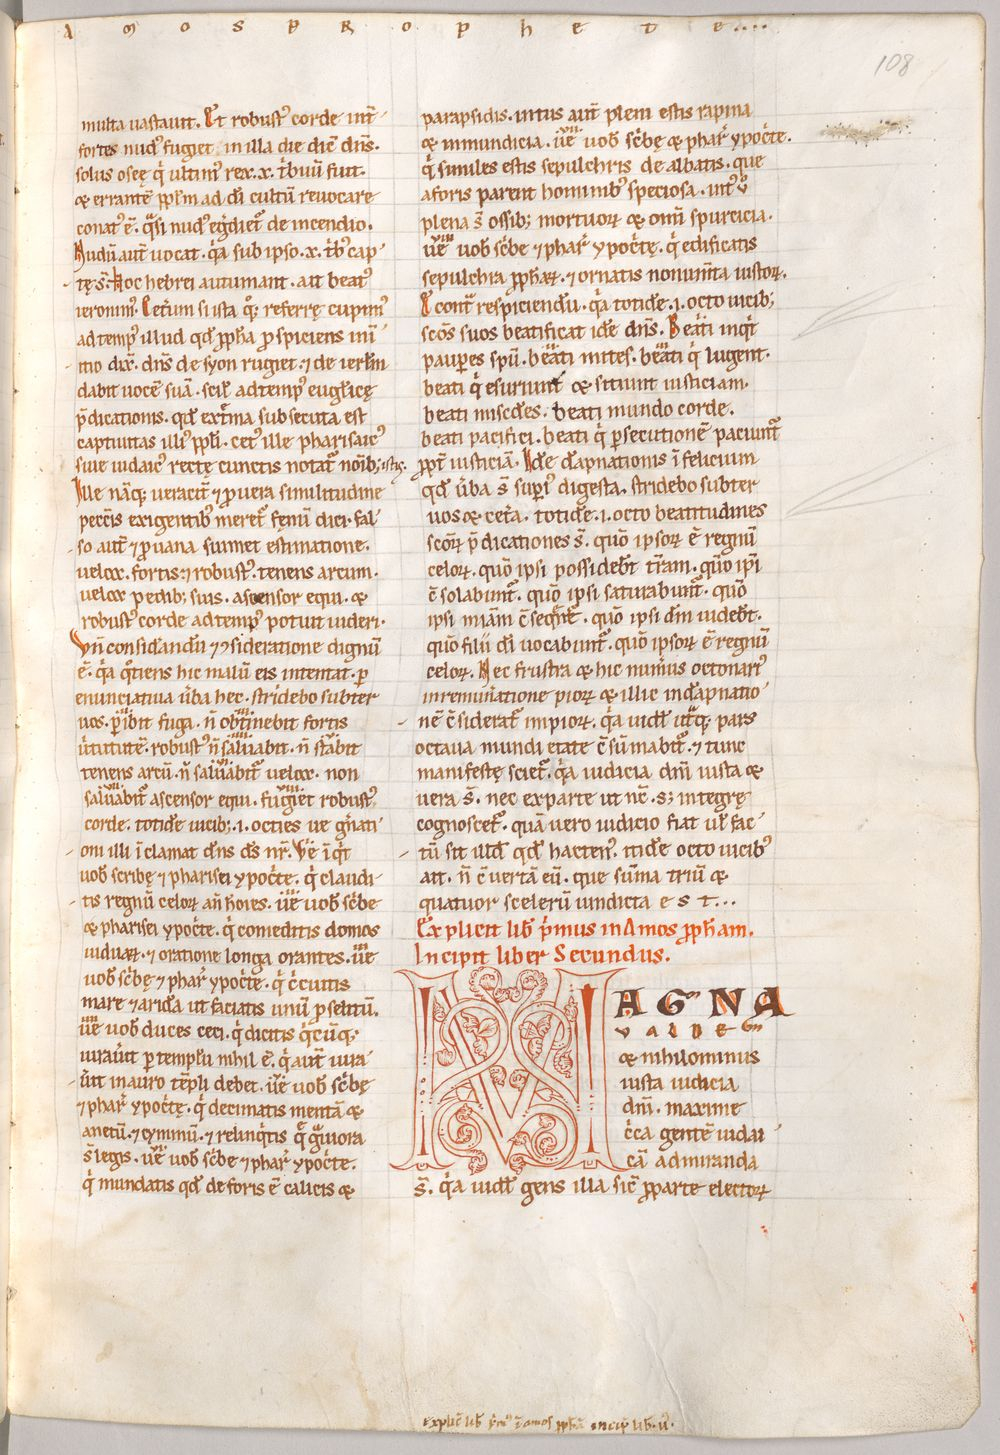 A m o s P R o p h e t e....
108
multa uastauit. Et robust' corde int̄
fortes nud' fugiet in illa die dic̄ dn̄s.
solus oseę q̇ ultim' rex .x. t̄buū fuit.
& errantē pp̄lm ad dī cultū reuocare
conat' ē. q̄si nud' eḡdiet̄ de incendio.
Nudū aut̄ uocat. q̇a sub ipso .x. t̄b' cap
tę s̄. Hoc hebrei autumant. ait beat'
ieronim'. Cet̄um si ista q̇; referrę cupim'
ad temp' illud qd̄ pp̄ha p̄spiciens ini
tio dix̄. dn̄s de syon rugiet. ⁊ de ierl̄m
dabit uocē suā. scil̄ ad temp' eugl̄icę
p̄dicationis. qd̄ ext̄ma subsecuta est
captiuitas illi' pp̄li. cet' ille pharisaic'
siue iudaic' rectę cunctis notat̄ noīb; istis.
Ille nāq; ueracit̄ ⁊ p uera similitudine
peccīs exigentib' meret̄ fęnū dici. fal
so aut̄ ⁊ p uana sui met estimatione.
uelox. fortis. ⁊ robust'. tenens arcum.
uelox pedib; suis. ascensor equi. &
robust' corde ad temp' potuit uideri.
Vn̄ consid̄andū ⁊ ꝯsideratione dignū
ē. q̇a q̇tiens hic malū eis intentat. p
enunciatiua ūba hec. stridebo subter
uos. p̄ibit fuga. n̄ obtinebit fortis
ūtitutē. robust' n̄ saluabit. n̄ stabit
tenens arcū. n̄ saluabit̄ uelox. non
saluabit̄ ascensor equi. fugiet robust'
corde. totid̄e uicib; .i. octies ue gn̄ati
oni illi īclamat dn̄s ds̄ nr̄. Vē īq̇t
uob̄ scribę ⁊ pharisei ypoc̄te. q̇ claudi
tis regnū celoꝝ an̄ hōies. ūe uob̄ sc̄be
& pharisei ypoc̄te. q̇ comeditis domos
uiduaꝝ. ⁊ oratione longa orantes. ūe
uob̄ sc̄bę ⁊ phar̄ ypoc̄te. q̇ c̄cuitis
mare ⁊ arid̄a ut faciatis unū pselitū.
ūe uob̄ duces ceci. q̇ dicitis q̇cūq;
iurauit̄ p templū nihil ē. q̇ aut̄ iura
ūit in auro tēpli debet. ūe uob̄ sc̄bę
⁊ phar̄ ypoc̄tę. q̇ decimatis mentā &
anetū. ⁊ cyminū. ⁊ relinq̇tis q̄ ḡuiora
s̄ legis. ūe uob̄ sc̄be ⁊ phar̄ ypoc̄te.
q̇ mundatis qd̄ deforis ē calicis &
parapsidis. intus aut̄ plem estis rapina
& inmundicia. ūe uob̄ sc̄bę & phar̄ ypoc̄te.
q̇ similes estis sepulchris de albatis. que
aforis parent hominib' speciosa. int' ū
plena s̄ ossib; mortuoꝝ & omī spurcicia.
ūe uob̄ sc̄be ⁊ phar̄ ypoc̄tę. q̇ edificatis
sepulchra pp̄haꝝ. ⁊ ornatis monum̄ta iustoꝝ.
E cont̄ respiciendū. q̇a totid̄e .i. octo uicib;
sc̄os suos beatificat idē dn̄s. Beāti inq̇t
paup̄es spū. beāti mites. beāti q̇ lugent.
beati q̇ esuriunt & sitiunt iusticiam.
beati misc̄des. beati mundo corde.
beati pacifici. beati q̇ p̄secutionē paciunt̄
pp̄t iusticiā. Idē dāpnationis īfelicium
qd̄ ūba s̄ supi' digesta. stridebo subter
uos & cet̄a. totid̄e .i. octo beatitudines
sc̄oꝝ p̄dicationes s̄. quō ipsoꝝ ē regnū
celoꝝ. quō ipsi possideb̄t t̄ram. quō ip̄i
c̄solabunt̄. quō ipsi saturabunt̄. quō
ipsi mīam c̄seq̄nt̄. quō ipsi dm̄ uideb̄t.
quō filii dī uocabunt̄. quō ipsoꝝ ē regnū
celoꝝ. Nec frustra & hic numus octonari'
in remun̄atione pioꝝ & illic in dāpnatio
nē c̄siderat̄ impioꝝ. q̇a uidl̄ utq; pars
octaua mundi etate c̄sūmabit̄. ⁊ tunc
manifestę sciet̄. q̇a iudicia dn̄i iusta &
uera s̄. nec ex parte ut nc̄. s; integrę
cognoscet̄. quā uero iudicio fiat ul̄ fac
tū sit illd̄ qd̄ hacten'. itid̄e octo uicib'
ait. n̄ c̄uertā eū. que sūma triū &
quatuor scelerū iundicta e s t...
Explicit lib̄ p̄mus in Amos pp̄ham.
Incipit liber Secundus.
MAGNA
VALDE Gn̄
& nihilominus
iusta iudicia
dn̄i. maxime
c̄ca gentē iudai
cā admiranda
s̄. q̇a uidl̄ gens illa sic̄ p parte electoꝝ
explic̄ lib̄ p̄m' ī amos pp̄hā incip̄ lib̄. ii'.